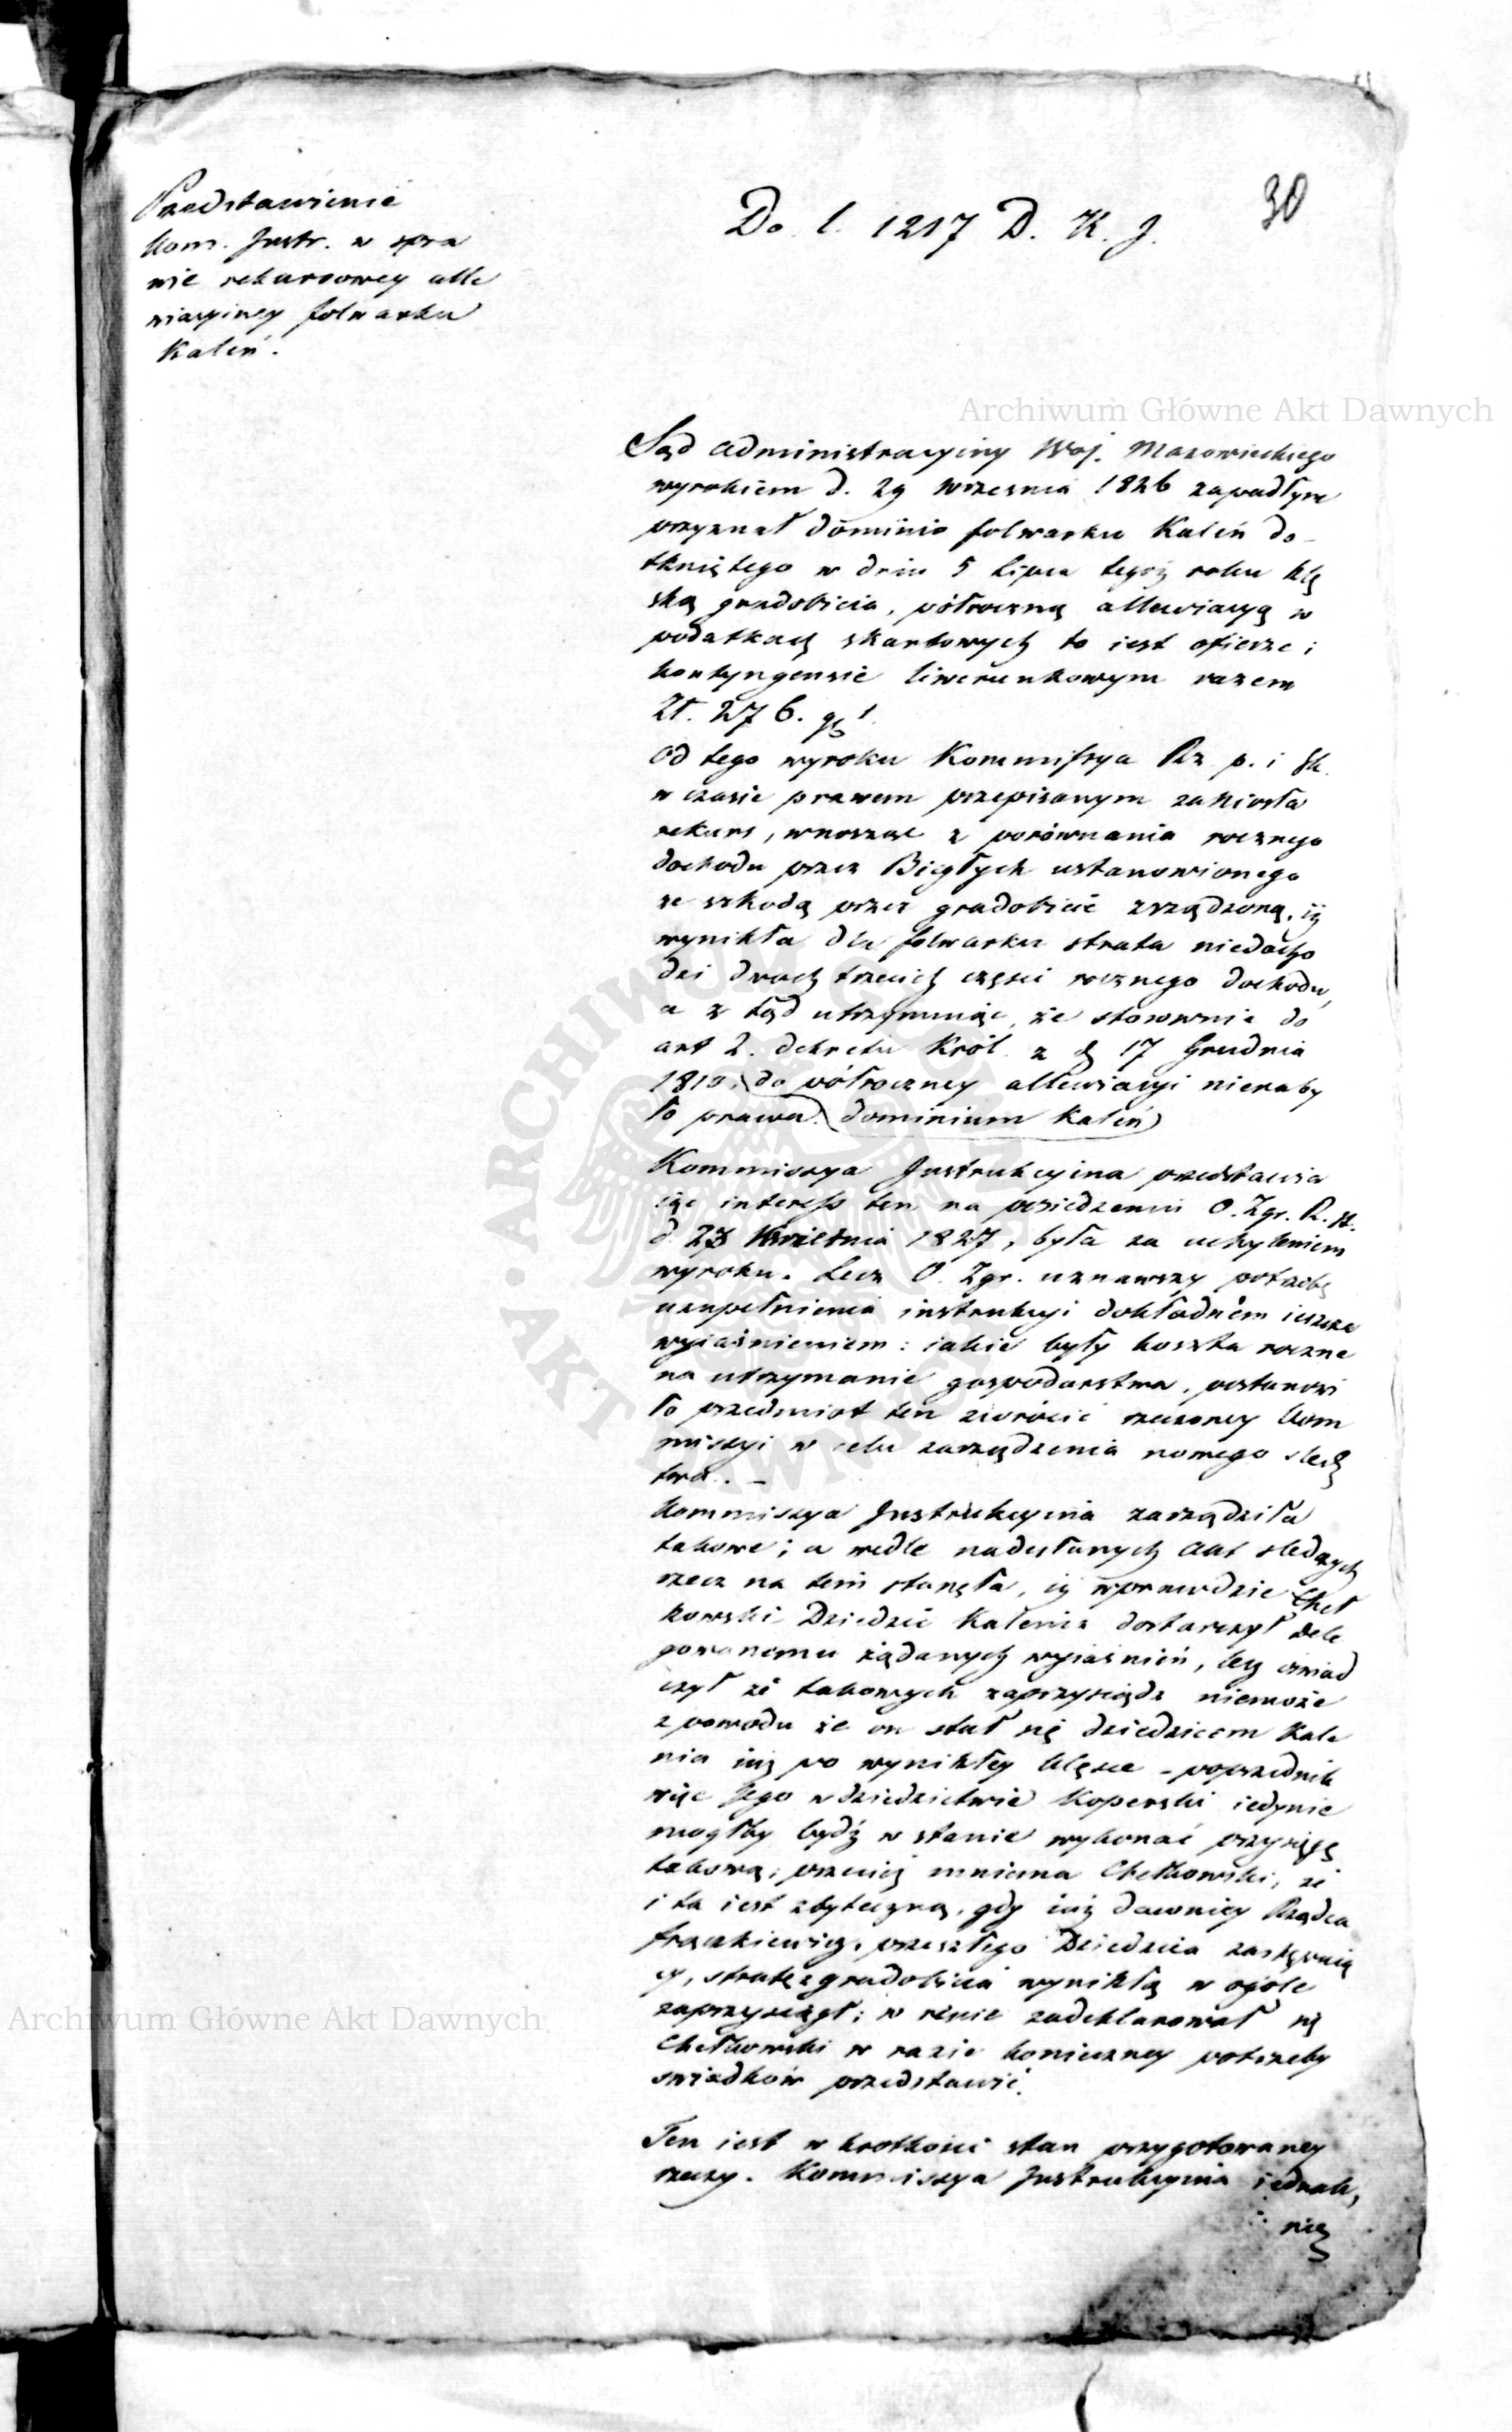 30
Do l. 1217 D. K. J.
Przedstawienie
Kom. Instr. w spra
wie rekursowey alle
wiacyiney folwarku
Kaleń.
Archiwum Główne Akt Dawnych
Sąd Administracyiny Woj. Mazowieckiego
wyrokiem d. 29 Września 1826 zapadłym
przyznał dominio folwarku Kaleń do-
tkniętego w dniu 5 Lipca tegoż roku klę
ską gradobicia, półroczną allewiacyą w
podatkach skarbowych to iest ofierze i
kontyngensie liwerunkowym razem
Zł. 276. gr 1.
Od tego wyroku Kommissya Rz. p. i Sk.
w czasie prawem przepisanym zaniosła
rekurs, wnosząc z porównania rocznego
dochodu przez Biegłych ustanowionego
ze szkodą przez gradobicie zrządzoną, iż
wynikła dla folwarku strata niedocho
dzi dwóch trzecich części rocznego dochodu,
a z tąd utrzymuiąc, że stosownie do
art 2. dekretu Król. z d 17 Grudnia
1810, do półroczney allewiacyi nienaby
ło prawa (dominium Kaleń)
Kommissya Instrukcyina przedstawia
iąc interess ten na posiedzeniu O. Zgr. R. St.
d. Kwietnia 1827, była za uchyleniem
wyroku. Lecz O. Zgr. uznawszy potrzebę
uzupełnienia instrukcyi dokładnem ieszcze
wyiaśnieniem: iakie były koszta roczne
na utrzymanie gospodarstwa, postanowi
ło przedmiot ten zwrócić rzeczoney Kom
missyi w celu zarządzenia nowego śledz
twa. –
Kommissya Instrukcyina zarządziła
takowe; a wedle nadesłanych Akt śledczych
rzecz na tem stanęła, iż wprawdzie Cheł
kowski Dziedzic Kalenia dostarczył dele
gowanemu żądanych wyiaśnień, lecz oświad
czył że takowych zaprzysiądz niemoże
z powodu że on stał się dziedzicem Kale
nia iuż po wynikłey klęsce – poprzednik
więc Jego w dziedzictwie Koperski iedynie
mogłby bydź w stanie wykonać przysięgę
takową; przecież mniema Chełkowski, że
i ta iest zbyteczną, gdy iuż dawniey Rządca
Frąckiewicz, przeszłego Dziedzica zastępuią
cy, stratę z gradobicia wynikłą w ogóle
zaprzysiągł; w resucie zadeklarował się
Chełkowski w razie konieczney potrzeby
świadków przedstawić.
Archiwum Główne Akt Dawnych
Ten iest w krótkości stan przygotowaney
rzeczy. Kommissya Instrukcyina iednak,
nie